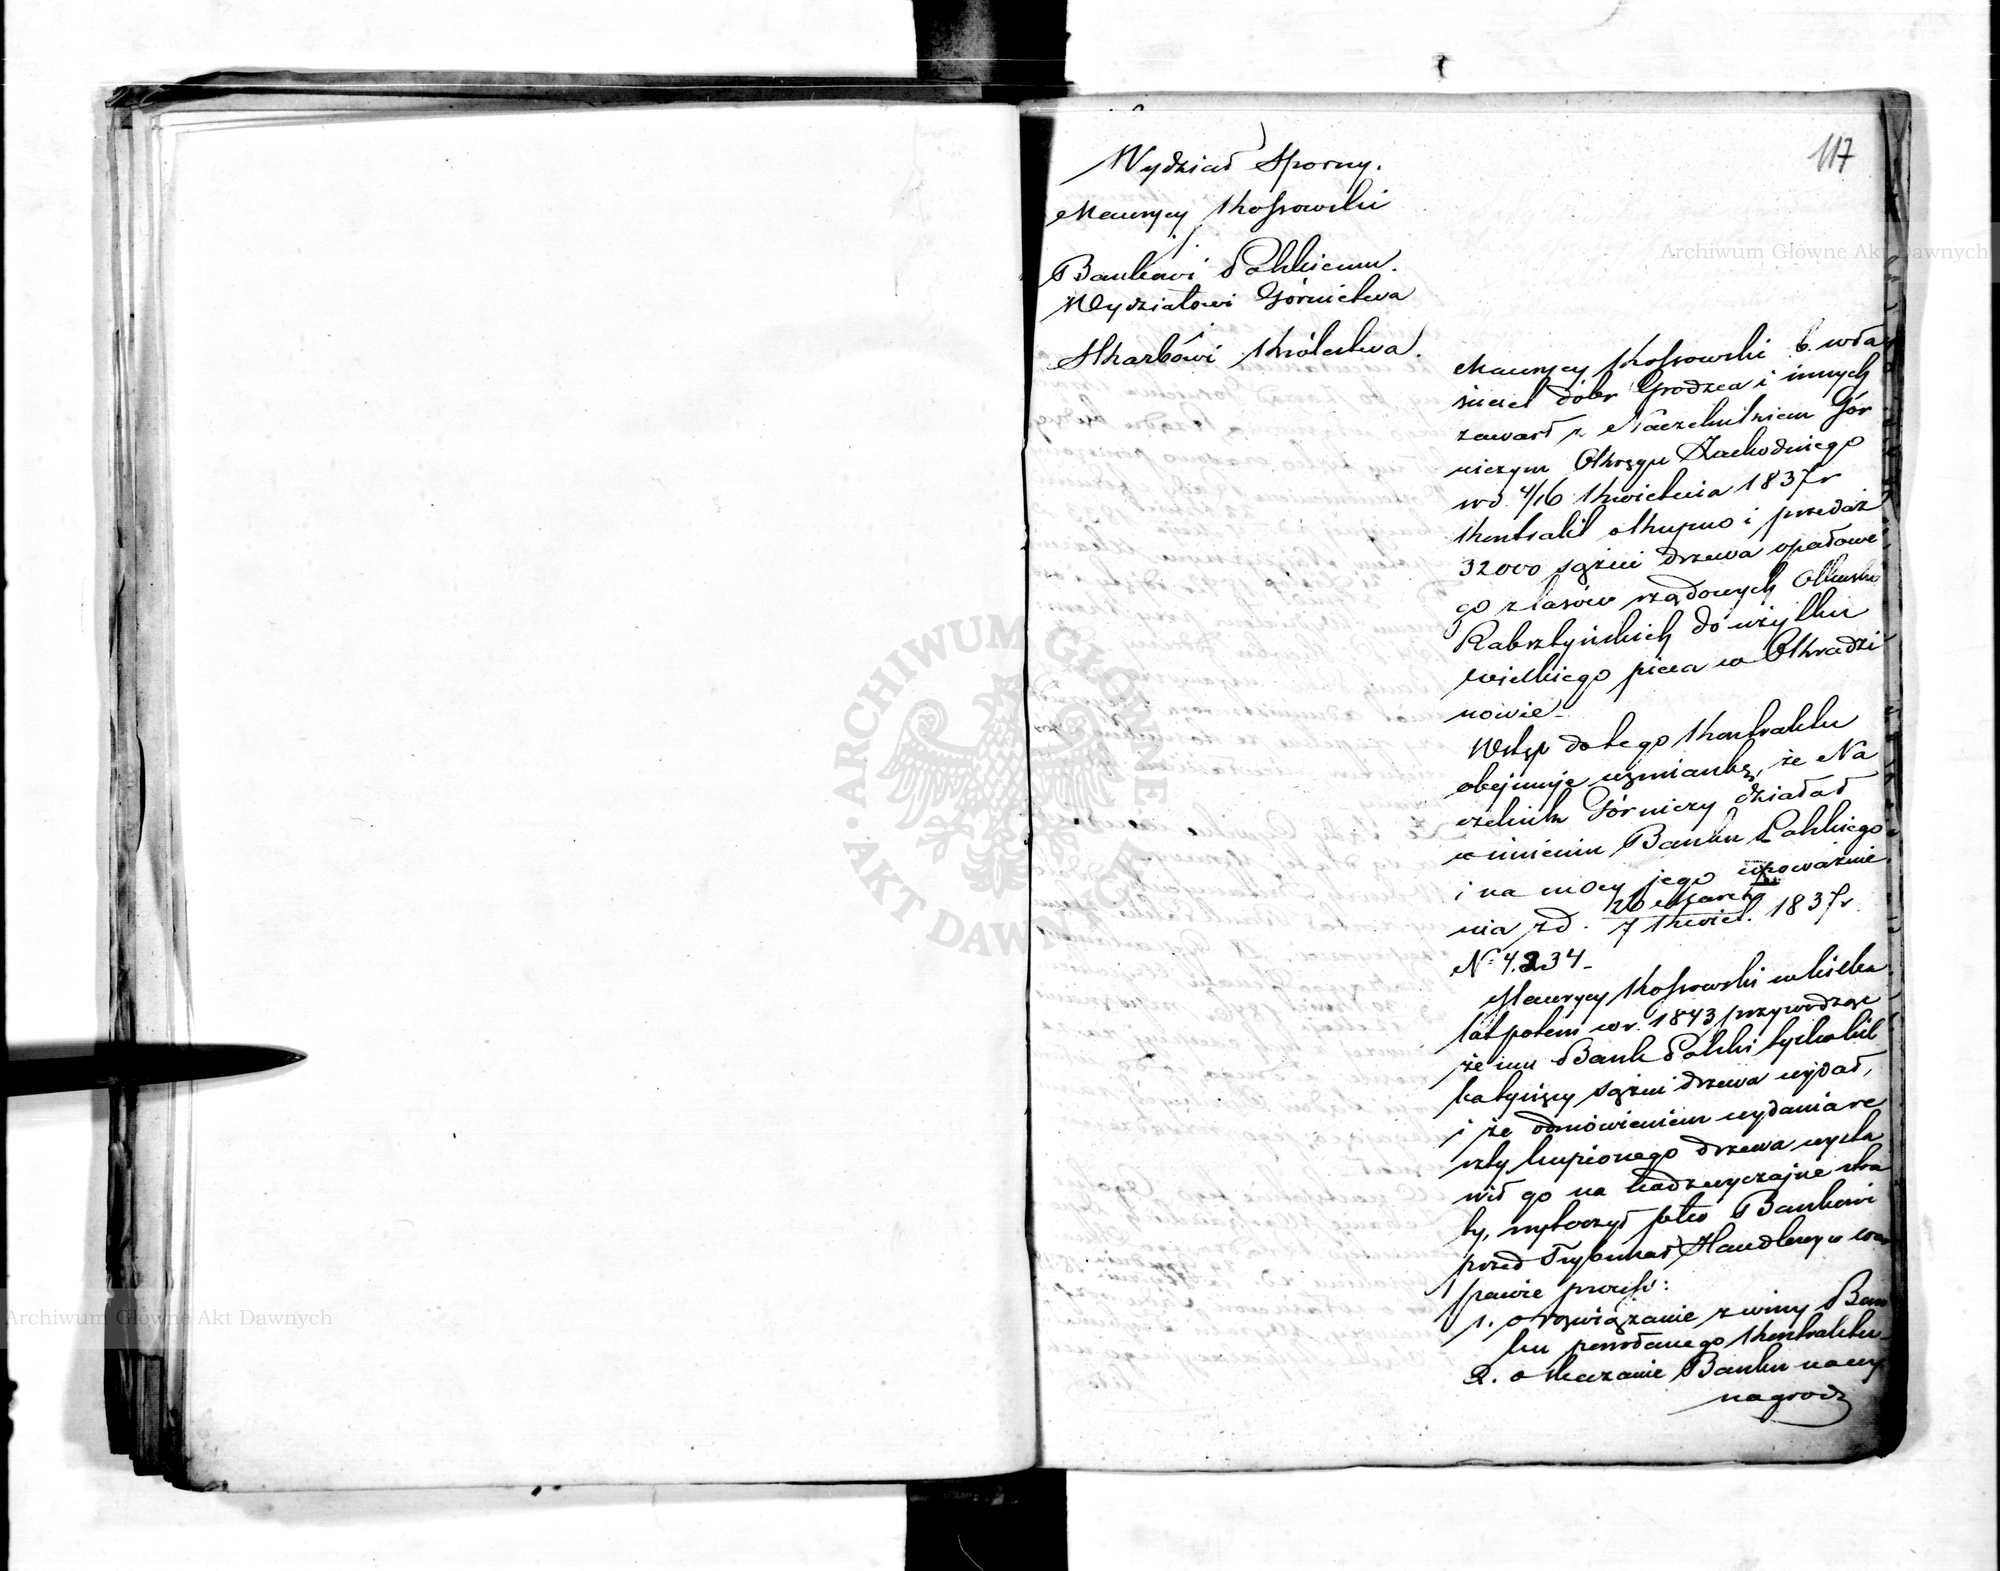 117
Wydział Sporny.
Maurycy Kossowski
/.
Bankowi Polskiemu.
Wydziałowi Górnictwa
Skarbowi Królestwa.
Maurycy Kossowski b. wła
ściciel dóbr Grodźca i innych
zawarł z Naczelnikiem Gór
niczym Okręgu Zachodniego
w d. 4/16 Kwietnia 1837 r
Kontrakt o kupno i przedaż
32000 sążni drzewa opałowe
go z lasów rządowych Olkusko
Rabsztyńskich do użytku
wielkiego pieca w Okradzi
nowie _
Wstęp do tego Kontraktu
obejmuje wzmiankę, że Na
czelnik Górniczy działał
w imieniu Banku Polskiego
i na mocy jego upoważnie
nia z d. 26 Marca / 7 Kwiet. 1837 r.
N. 4.234 _
Maurycy Kossowski w kilka
lat potem w r. 1843 przywodząc
że mu Bank Polski tylko kil
ka tysięcy sążni drzewa wydał,
i że odmówieniem wydania re
szty kupionego drzewa wysta
wił go na nadzwyczajne stra
ty, wytoczył Bankowi
przed Trybunał Handlowy w War
szawie proceſs:
1. o rozwiązanie z winy Ban
ku powołanego Kontraktu _
2. o skazanie Banku na wy
nagrodz
Archiwum Główne Akt Dawnych
Archiwum Główne Akt Dawnych
ARCHIWUM GŁÓWNE AKT DAWNYCH